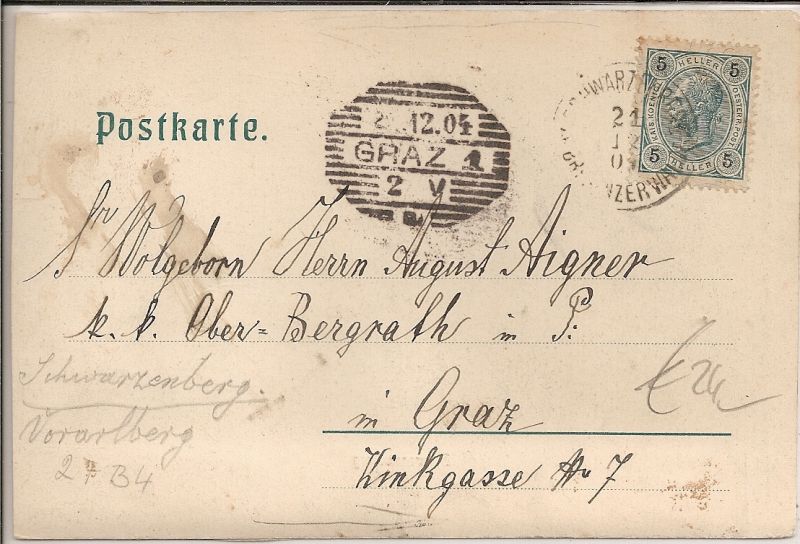 Postkarte.
12.04
GRAZ 1
2 V
SCHWARZENBERG
21
12
5 HELLER 5
KAIS. KOENIGL. OESTERR. POST
5 HELLER 5
Sr Wolgeborn Herrn August Aigner
k. k. Ober-Bergrath in P.
in Graz
Zinkgasse Nr 7
Schwarzenberg.
Vorarlberg
2 + B4